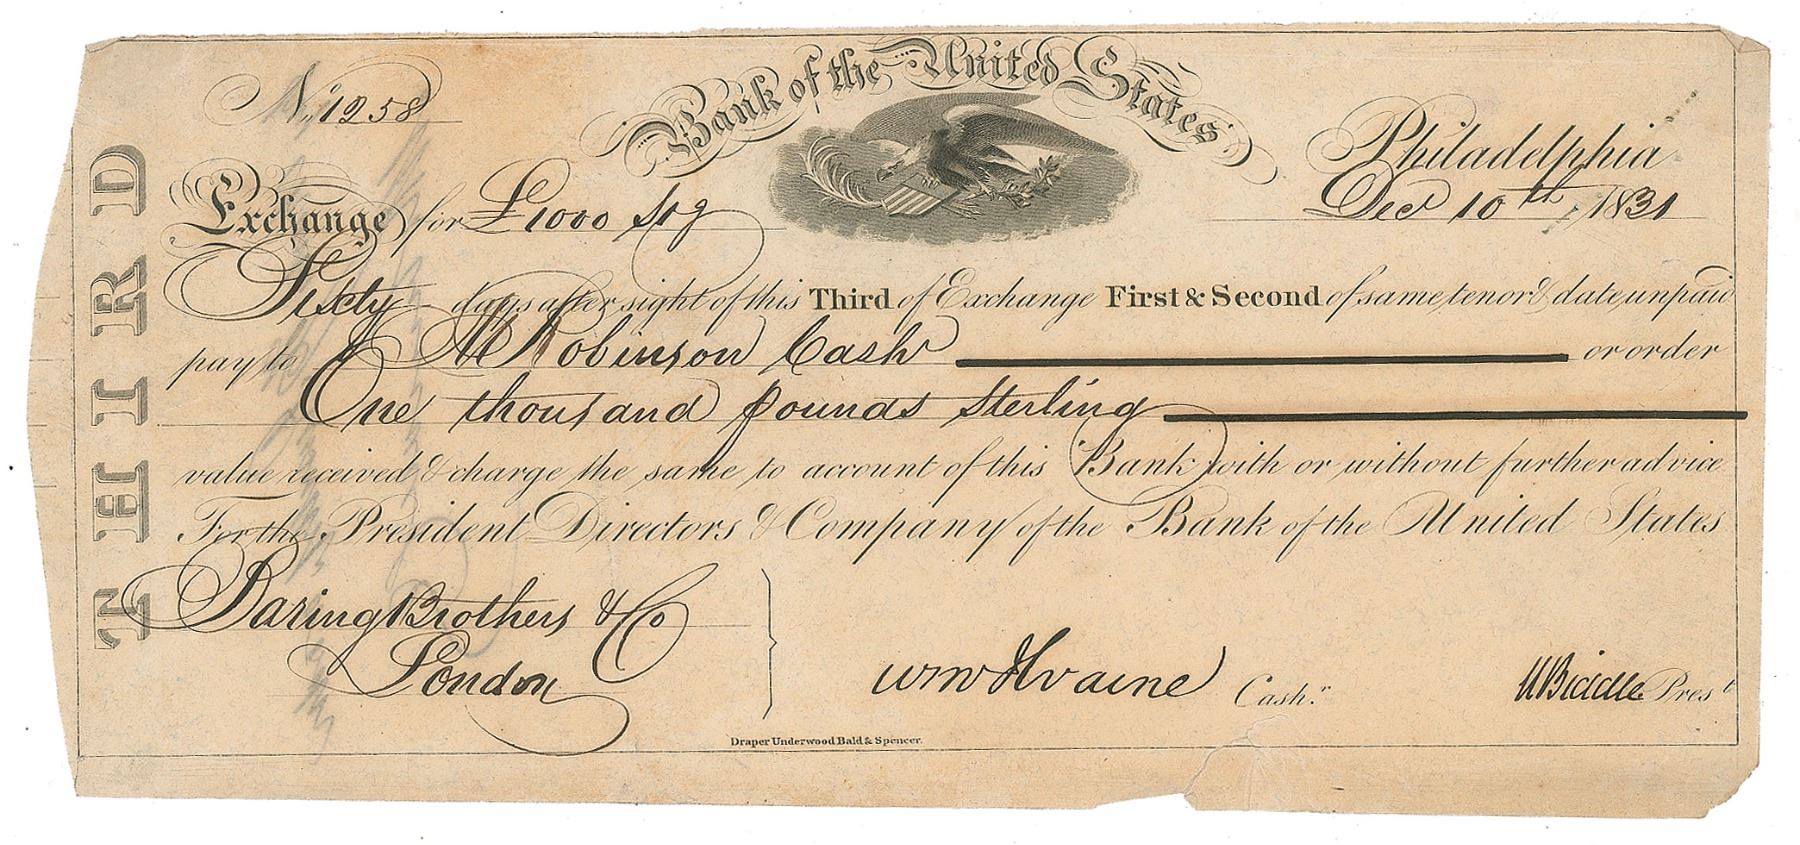 No. 1258
Bank of the United States
Philadelphia
Dec 10th, 1831
THIRD
Exchange for £1000 Stg
Sixty days after sight of this Third of Exchange First & Second of same tenor & date unpaid
pay to M Robinson Cash or order
One thousand pounds Sterling
value received & charge the same to account of this Bank with or without further advice
For the President Directors & Company of the Bank of the United States
Baring Brothers & Co
London
Cash.r
N Biddle Prest
Draper Underwood Bald & Spencer.